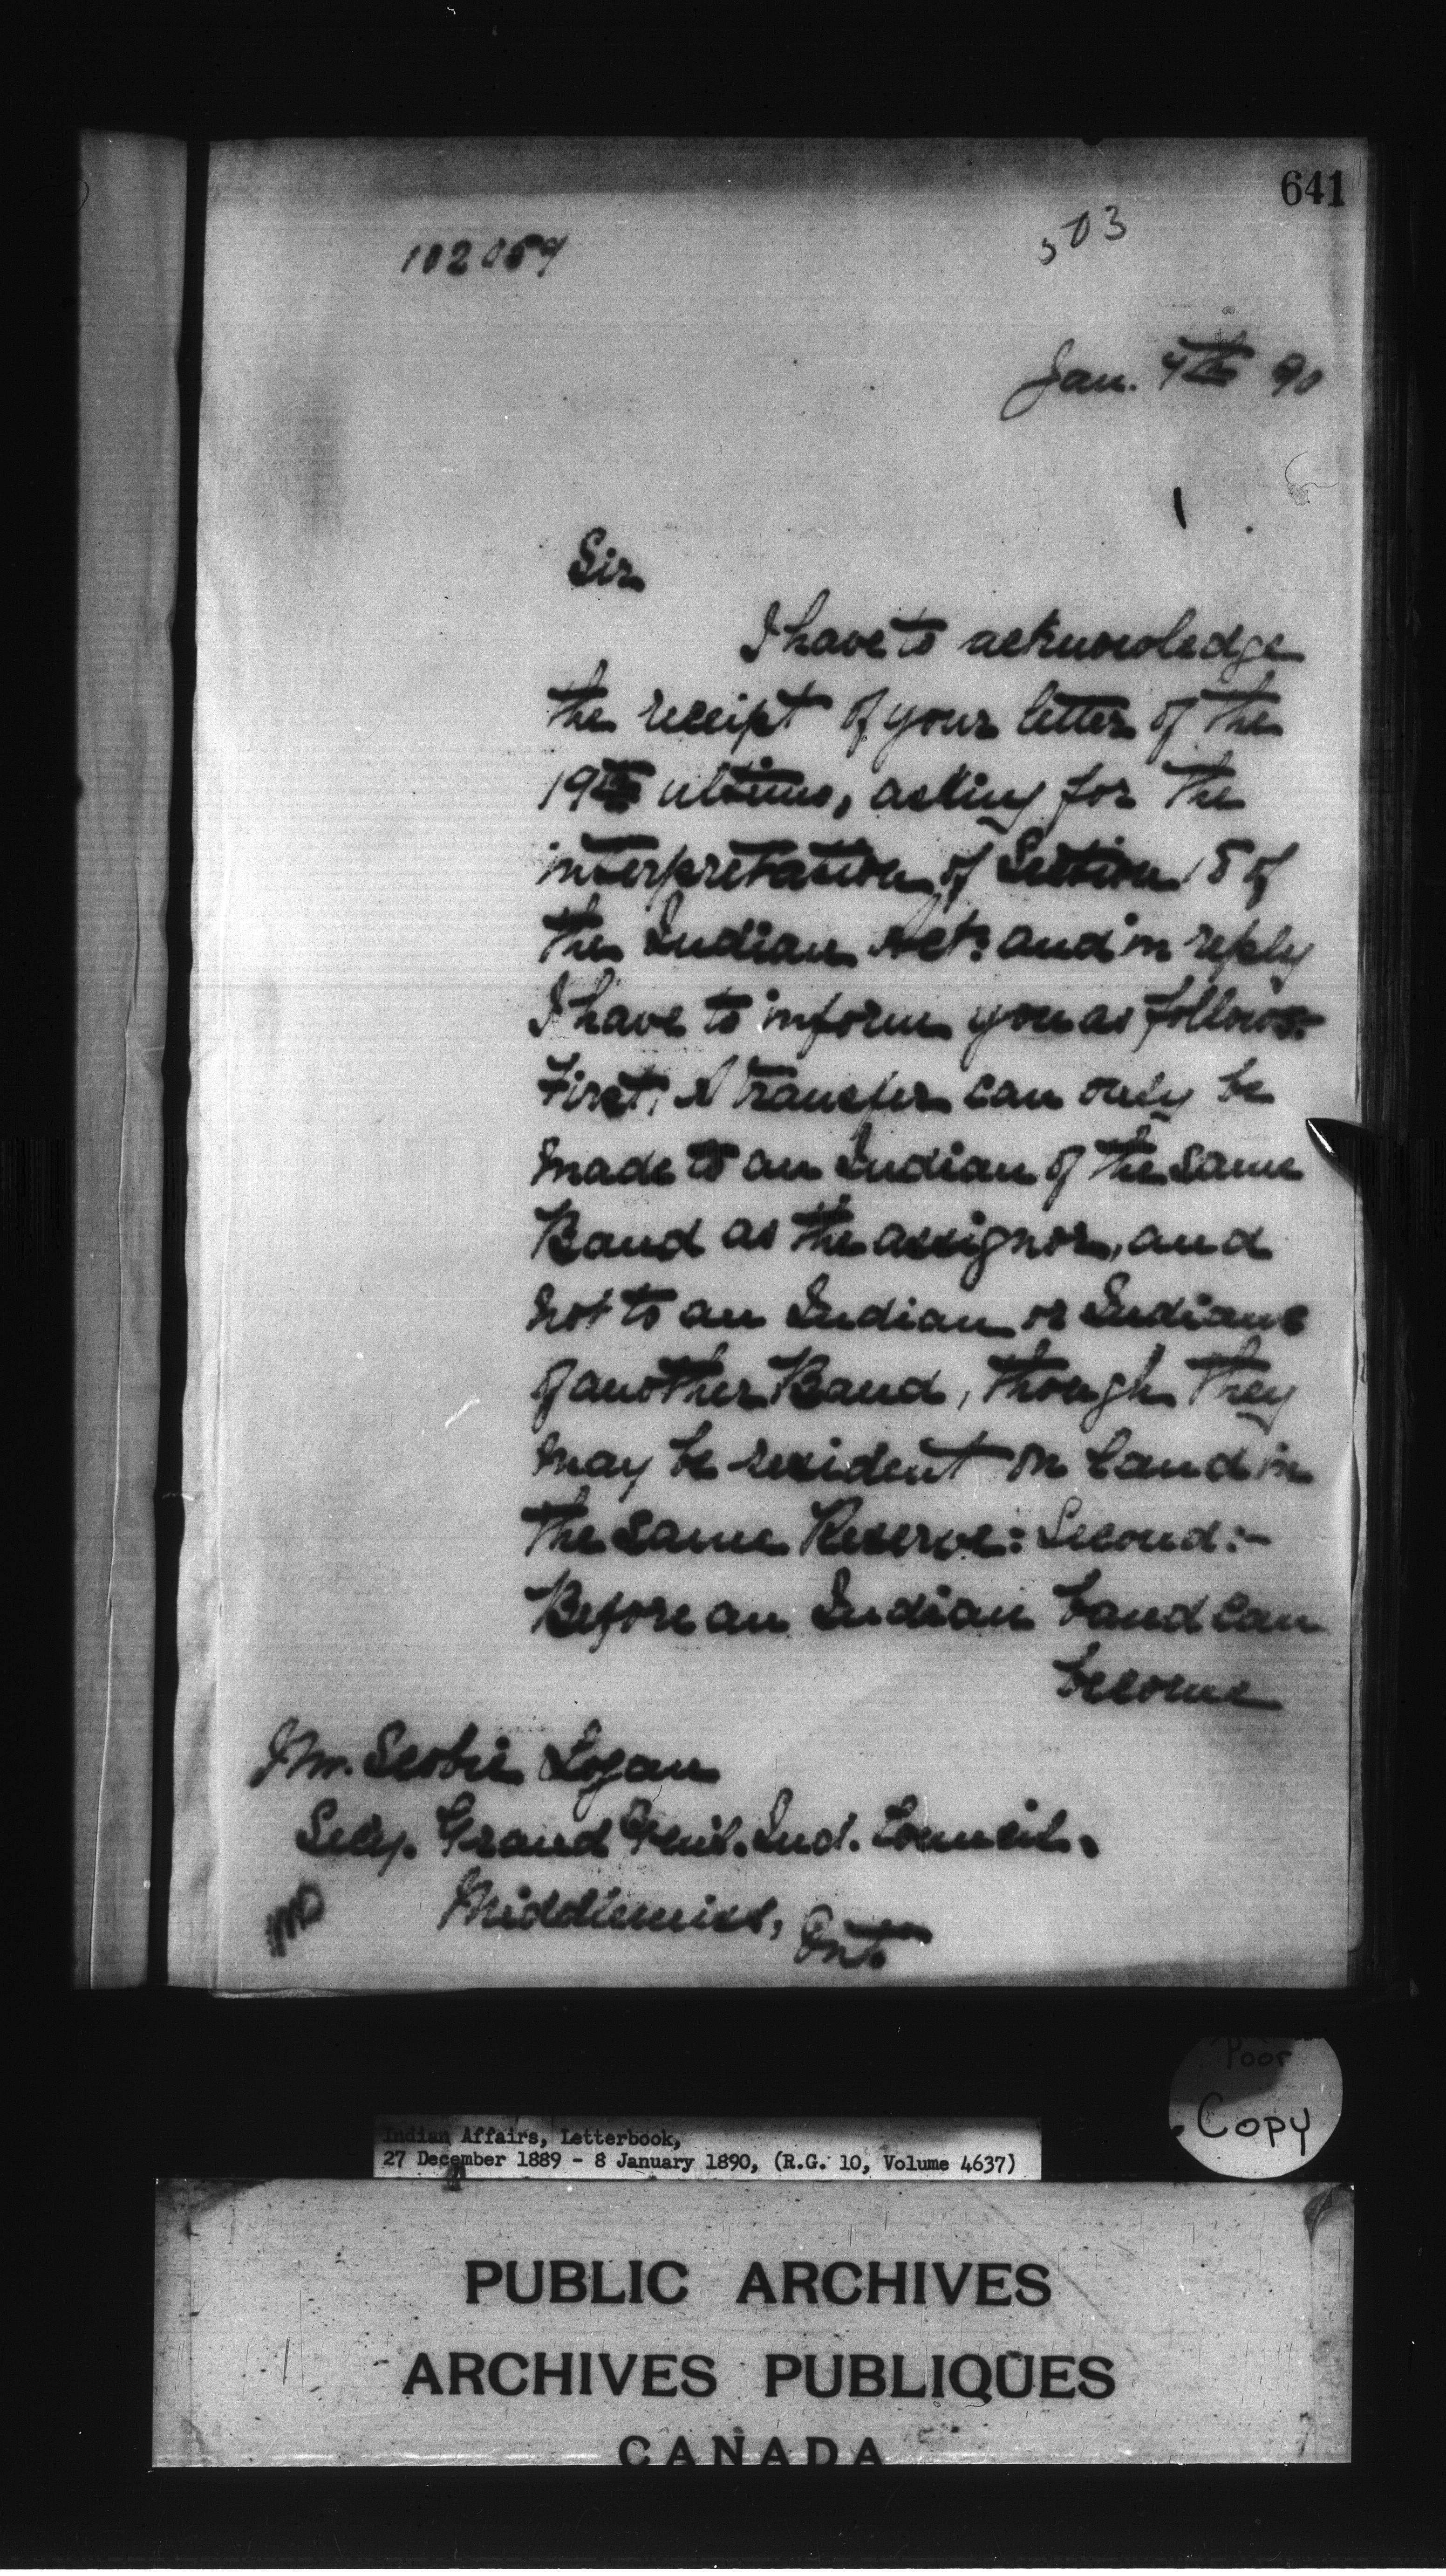 641
503
102059
Jan. 7th 90
Sir
I have to acknowledge
the receipt of your letter of the
19th ultimo, asking for the
interpretation of Section 18 of
the Indian Act: and in reply
I have to inform you as follows:-
First, A transfer can only be
made to an Indian of the same
Band as the assignor, and
not to an Indian or Indians
of another Band, though they
may be resident on land in
the same Reserve: Second:-
Before an Indian band can
become
Mr. Scobie Logan
Secy. Grand Genl. Ind. Council.
Middlemiss, Ont.
Poor
Copy
Indian Affairs, Letterbook,
27 December 1889 - 8 January 1890, (R.G. 10, Volume 4637)
PUBLIC ARCHIVES
ARCHIVES PUBLIQUES
CANADA